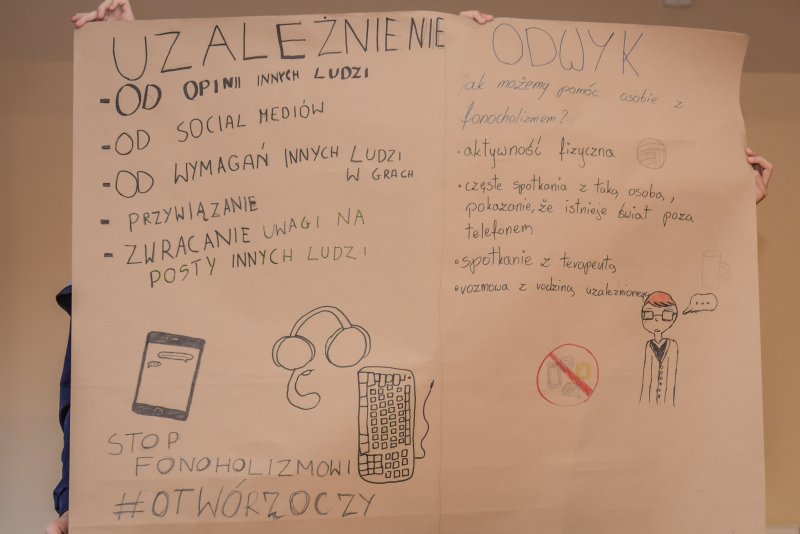 UZALEŻNIENIE
- OD OPINII INNYCH LUDZI
- OD SOCIAL MEDIÓW
- OD WYMAGAŃ INNYCH LUDZI
W GRACH
- PRZYWIĄZANIE
- ZWRACANIE UWAGI NA
POSTY INNYCH LUDZI
STOP
FONOHOLIZMOWI
#OTWÓRZOCZY
ODWYK
Jak możemy pomóc osobie z
fonocholizmem?
• aktywność fizyczna
• częste spotkania z taką osobą,
pokazanie, że istnieje świat poza
telefonem
• spotkanie z terapeutą
• rozmowa z rodziną uzależnionego
...